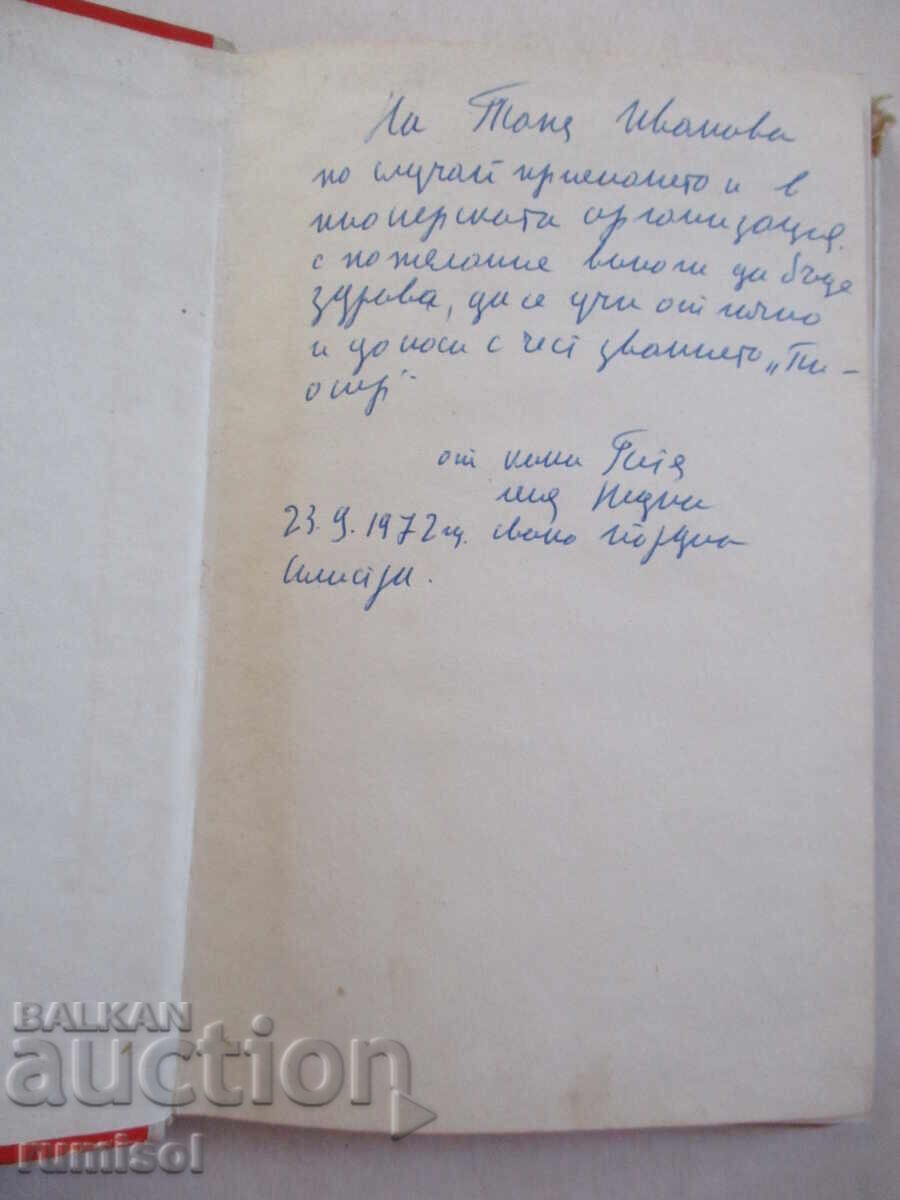 На Таня Иванова
по случай приемането и в
пионерската организация.
с пожелание винаги да бъде
здрава, да се учи отлично
и да носи с чест званието „Пи-
онер“
от кака Гита
леля
23.9.1972 г. свако Йордан
Силистра.
BALKAN
auction
rumisol